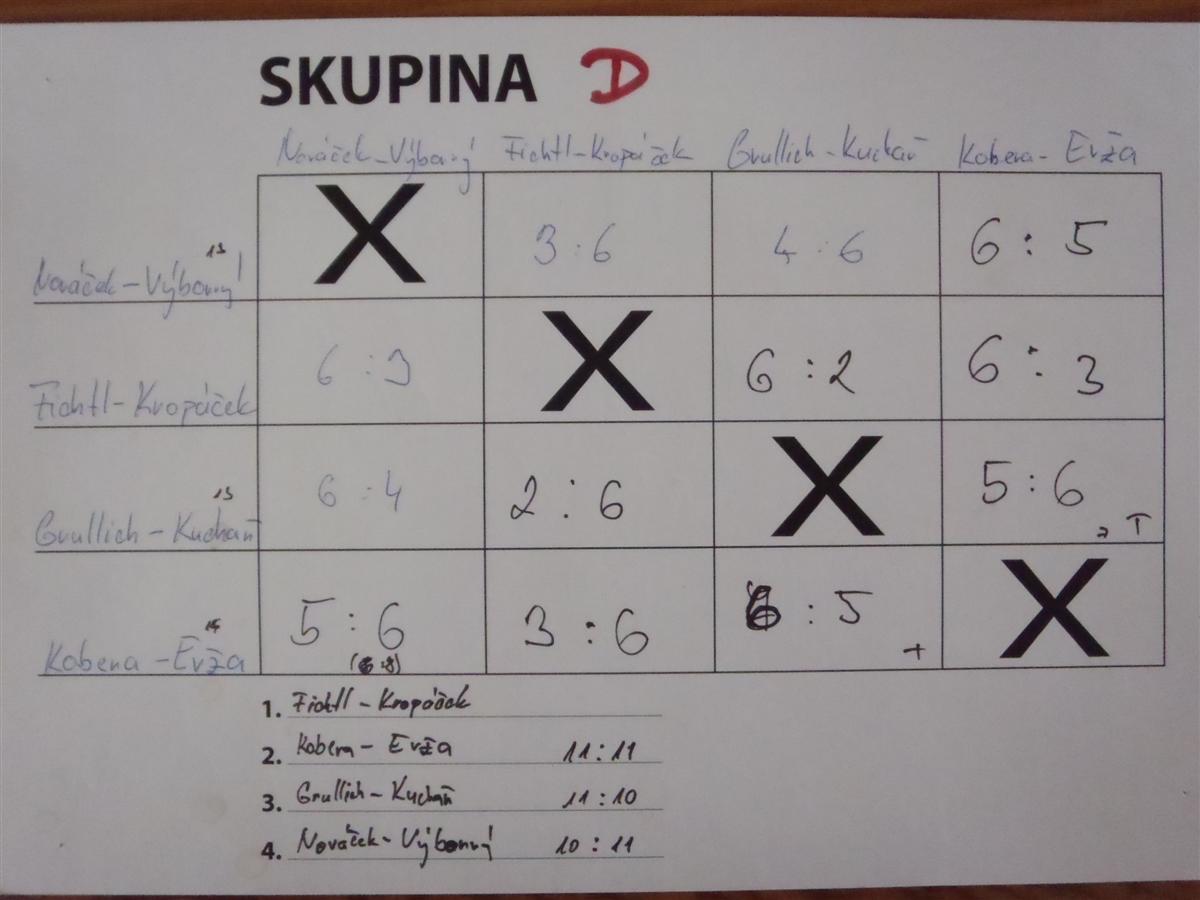 SKUPINA D
Nováček-Výborný Fichtl-Kropáček Grullich-Kuchař Kobera-Evža
13
Nováček-Výborný X 3:6 4:6 6:5
Fichtl-Kropáček 6:3 X 6:2 6:3
13
Grullich-Kuchař 6:4 2:6 X 5:6
Kobera-Evža 5:6 3:6 6:5 X
+
1. Fichtl-Kropáček
2. Kobera-Evža 11:11
3. Grullich-Kuchař 11:10
4. Nováček-Výborný 10:11